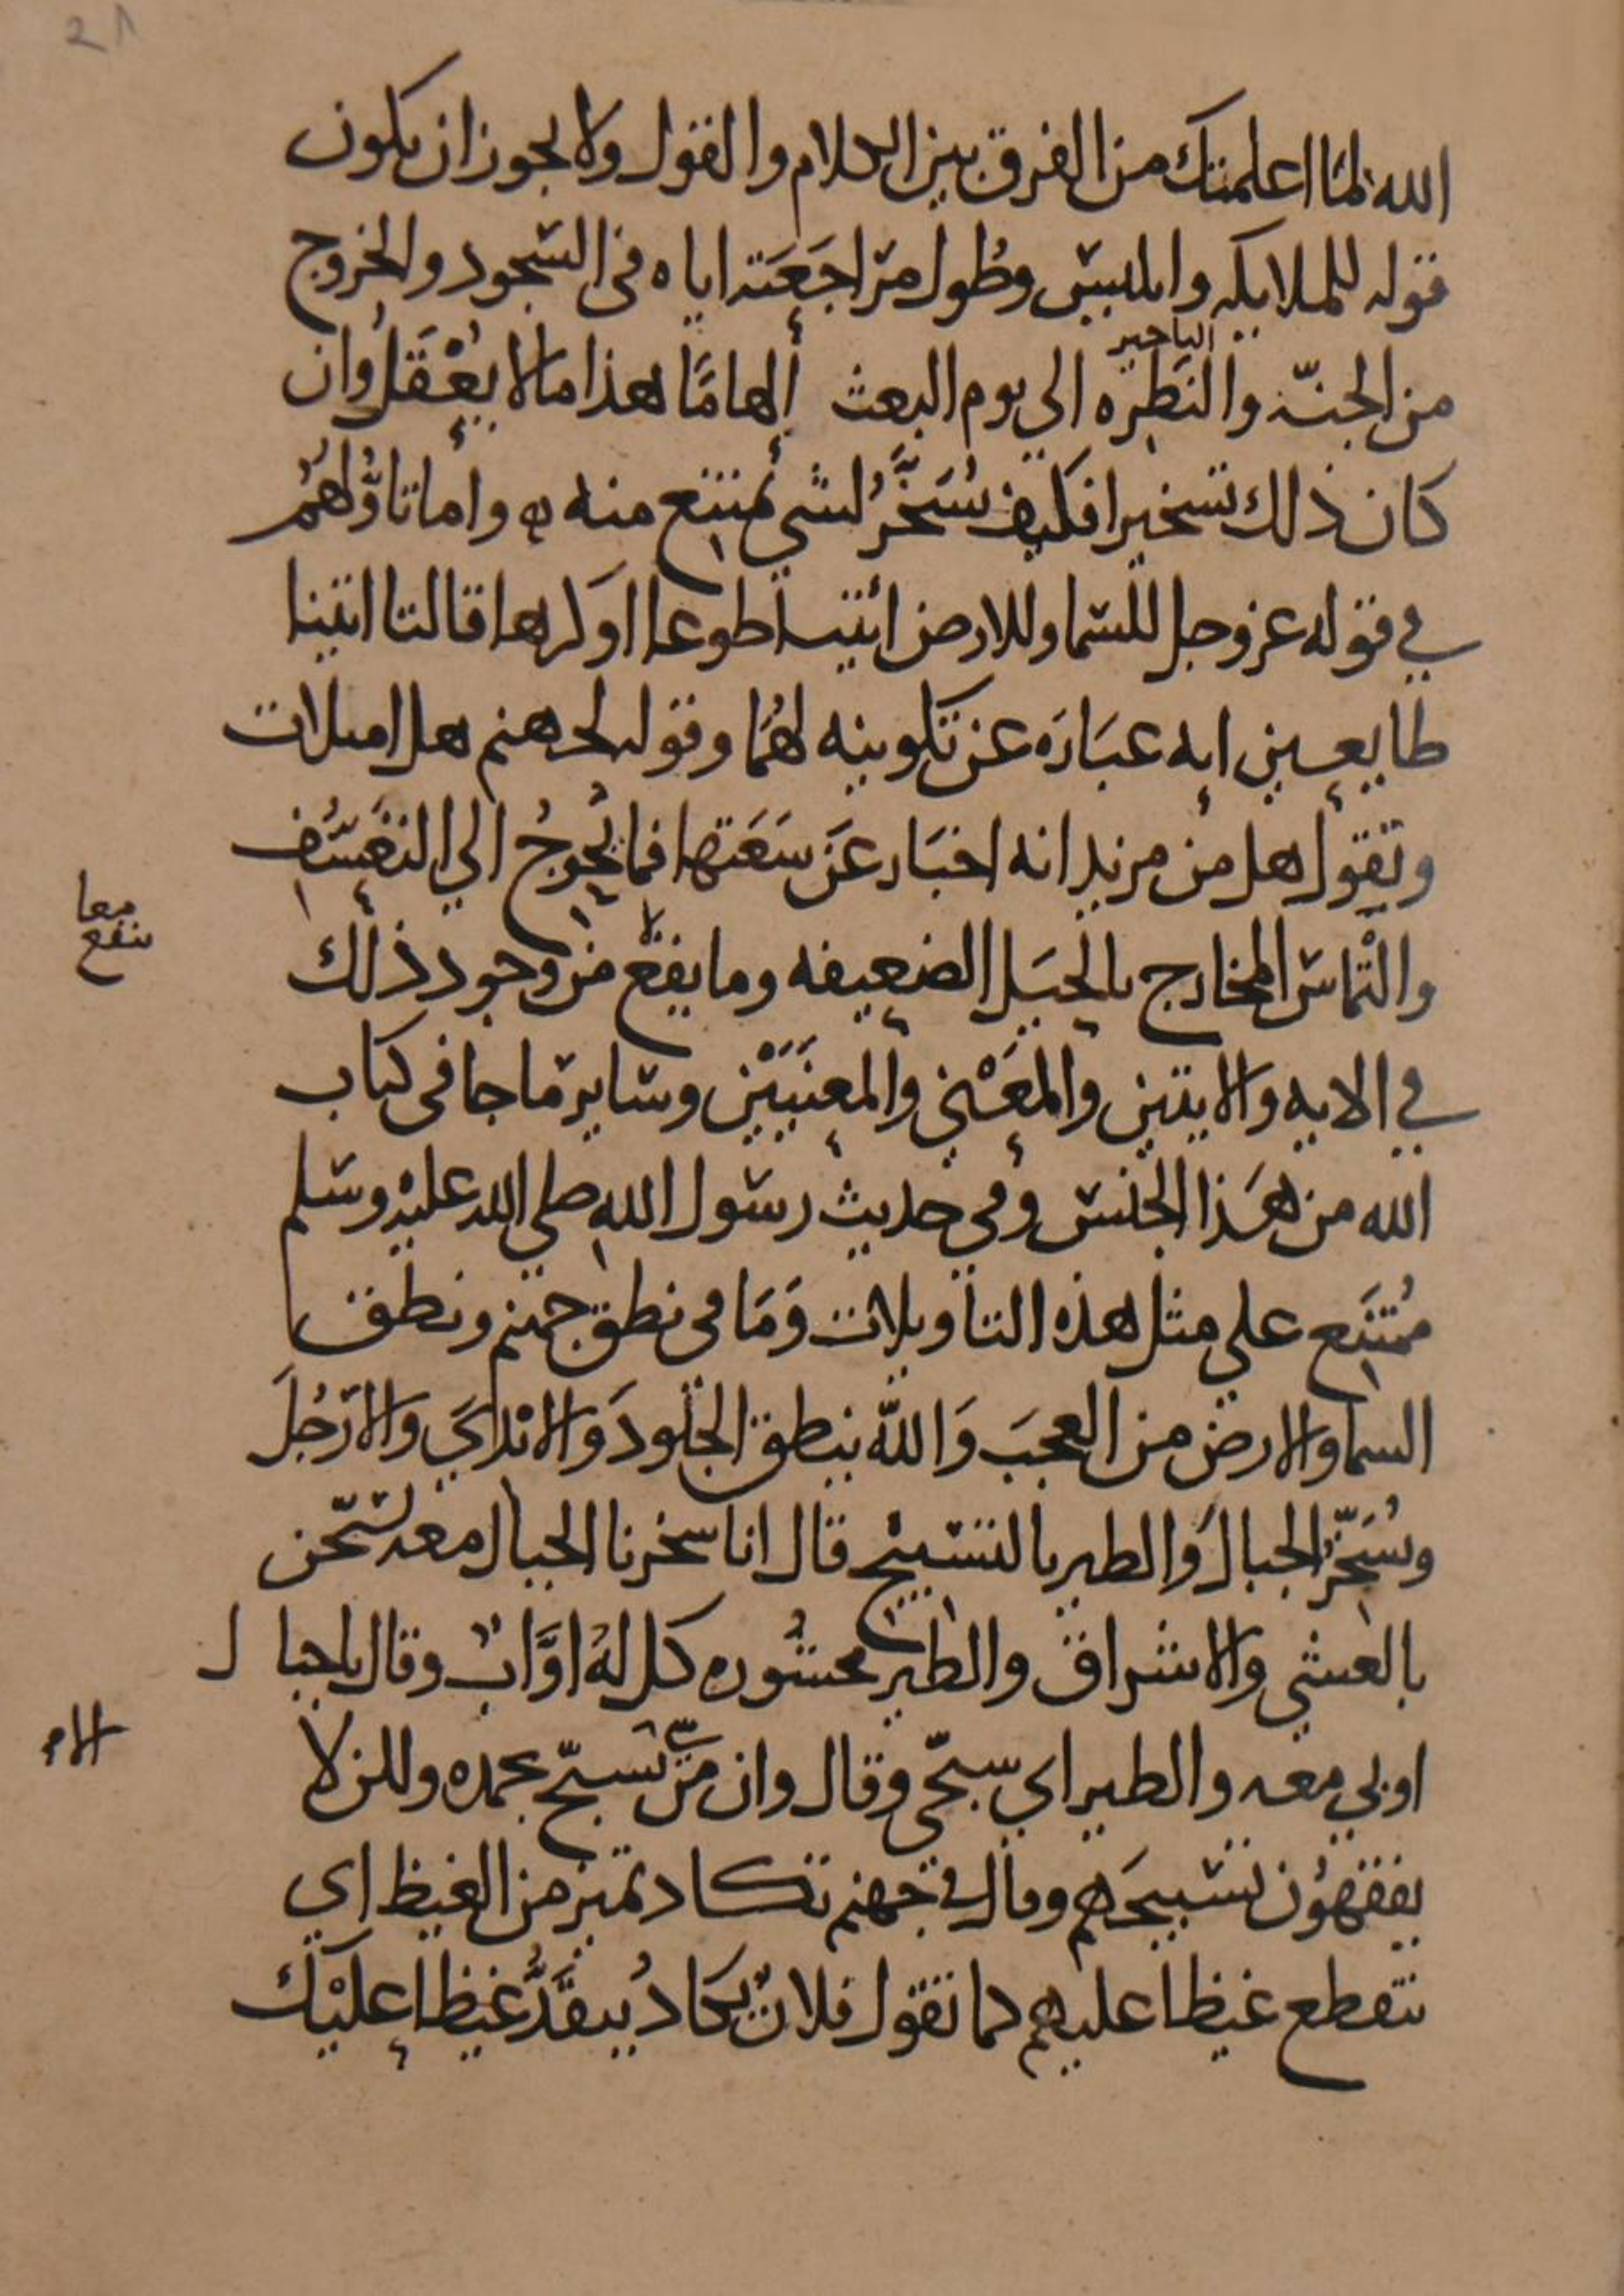 الله لما اعلمتك من الفرق بين الكلام والقول ولا يجوز ان يكون
قوله للملايكه وابليس وطول مراجعته اياه في السجود والخروج
التاخير
من الجنّة والنظره الي يوم البعث إلهامًا هذا ما لا يُعْقَلُ وان
كان ذلك تسخيرا فكيف سُخِّرُ لشي يمتنع منه واما تاوُّلهُم
في قوله عز وجل للسما وللارض ائتيا طوعا او كرها قالتا اتينا
طايعين انه عبَارَه عن تكوينه لهُمَا وقوله لجهنم هل امتلات
وتقول هل من مزيد انه اخبَار عَن سَعَتها فما يُحوِجُ الي التعَسُّف
والْتماس المخارج بالحيَل الضعيفه وما ينفع من وجود ذلك
معا
ينفع
في الايه والايتين والمعْني والمعنيَيْن وساير ما جا في كتاب
الله من هَذا الجنس وفي حديث رسول الله صلي الله عليْه وسلم
مُمتنَع علي مثل هذه التاويلات وَمَا في نطق جهنم ونطق
السما والارض من العجبَ وَاللّه ينطق الجلودَ وَالايْديَ والارْجُلَ
ويُسَخِّرُ الجبالَ وَالطير بالتسْبيْح قال انا سخرنا الجبال معه يُسَبّحن
بالعشي والاشراق والطير محشُوره كل لهُ اوَّابٌ وقال يا جبال
اوبي معه والطير اي سبحّي وقال وان من شي الا يسَبّح بحمده ولكن لا
الام
يفقهُون تسبيحَهم وقال في جهنم تكاد تميز من الغيظ اي
تتقطع غيظا عليهم كما تقول فلانٌ يكَادُ ينقَدُّ غيظا عليْك